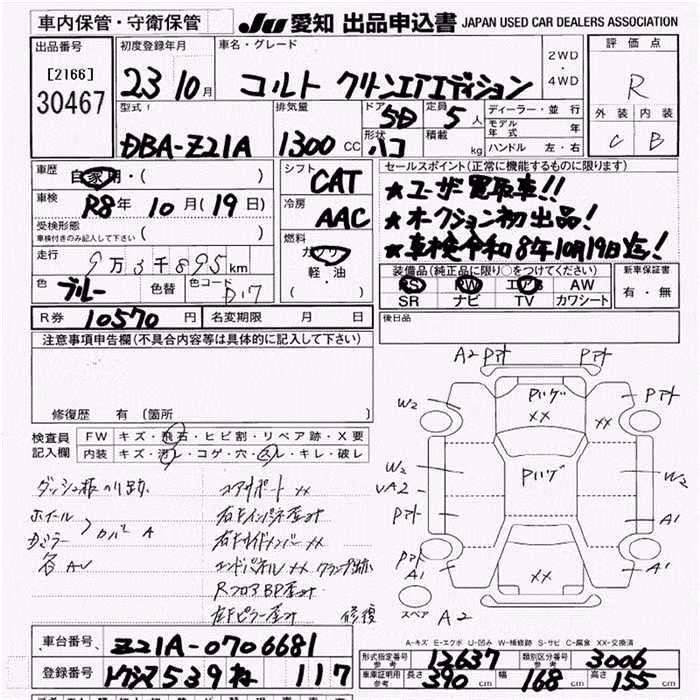 車内保管・守衛保管 JU 愛知 出品申込書 JAPAN USED CAR DEALERS ASSOCIATION
出品番号 初度登録年月 車名・グレード 2WD・4WD 評価点
[2166] 23 10月 コルト クリーンエアエディション R
30467
型式 排気量 ドア 5D 定員 5人 ディーラー・並行 外装 内装
モデル年式
DBA-Z21A 1300cc 形状 ハコ 積載 kg ハンドル 左・右 C B
車歴 自家用・( ) シフト CAT セールスポイント(正常に機能するものに限ります)
車検 R8年 10月(19日) 冷房 AAC ★ユーザー買取車!!
受検形態 ( ) ★オークション初出品!
車検付きのみ記入して下さい
燃料 ★車検令和8年10月19日迄!
走行 9万3千895km ガソリン 軽・油 ・( ) 装備品(純正品に限り○をつけてください) 新車保証書
色 ブルー 色替 色コード D17 PS PW エアB AW 有・無
SR ナビ TV カワシート
R券 10570円 名変期限 月 日 後日品
注意事項申告欄(不具合内容等は具体的に記入して下さい)
修復歴 有 〔箇所 〕
A2 Pオト Pオト
Pハゲ
W2 XX XX Pオト
W2 Pハゲ W2
A2
Pオト A1
Pオト A1 XX A1
スペア A2
検査員記入欄 FW キズ・飛石・ヒビ割・リペア跡・X要
内装 キズ・汚レ・コゲ・穴・スレ・キレ・破レ
ダッシュ板のり跡 コアサポート XX
ホイール 右Fインパネ歪ミ
カバー A 右Fサイドメンバー XX
各AU エンドパネル XX クランプ跡
RフロアBP歪ミ
左Fピラー歪ミ 修復
A-キズ E-エクボ U-凹み W-補修跡 S-サビ C-腐食 XX-交換済
車台番号 Z21A-0706681
形式指定番号 参考 13637 類別区分番号 参考 3006
登録番号 539 ね 117
車庫証明用 参考 長さ 390cm 幅 168cm 高さ 155cm